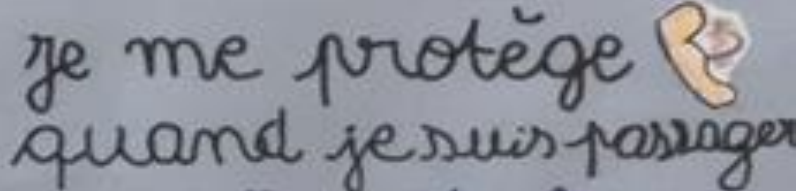 Je me protège
quand je suis passager